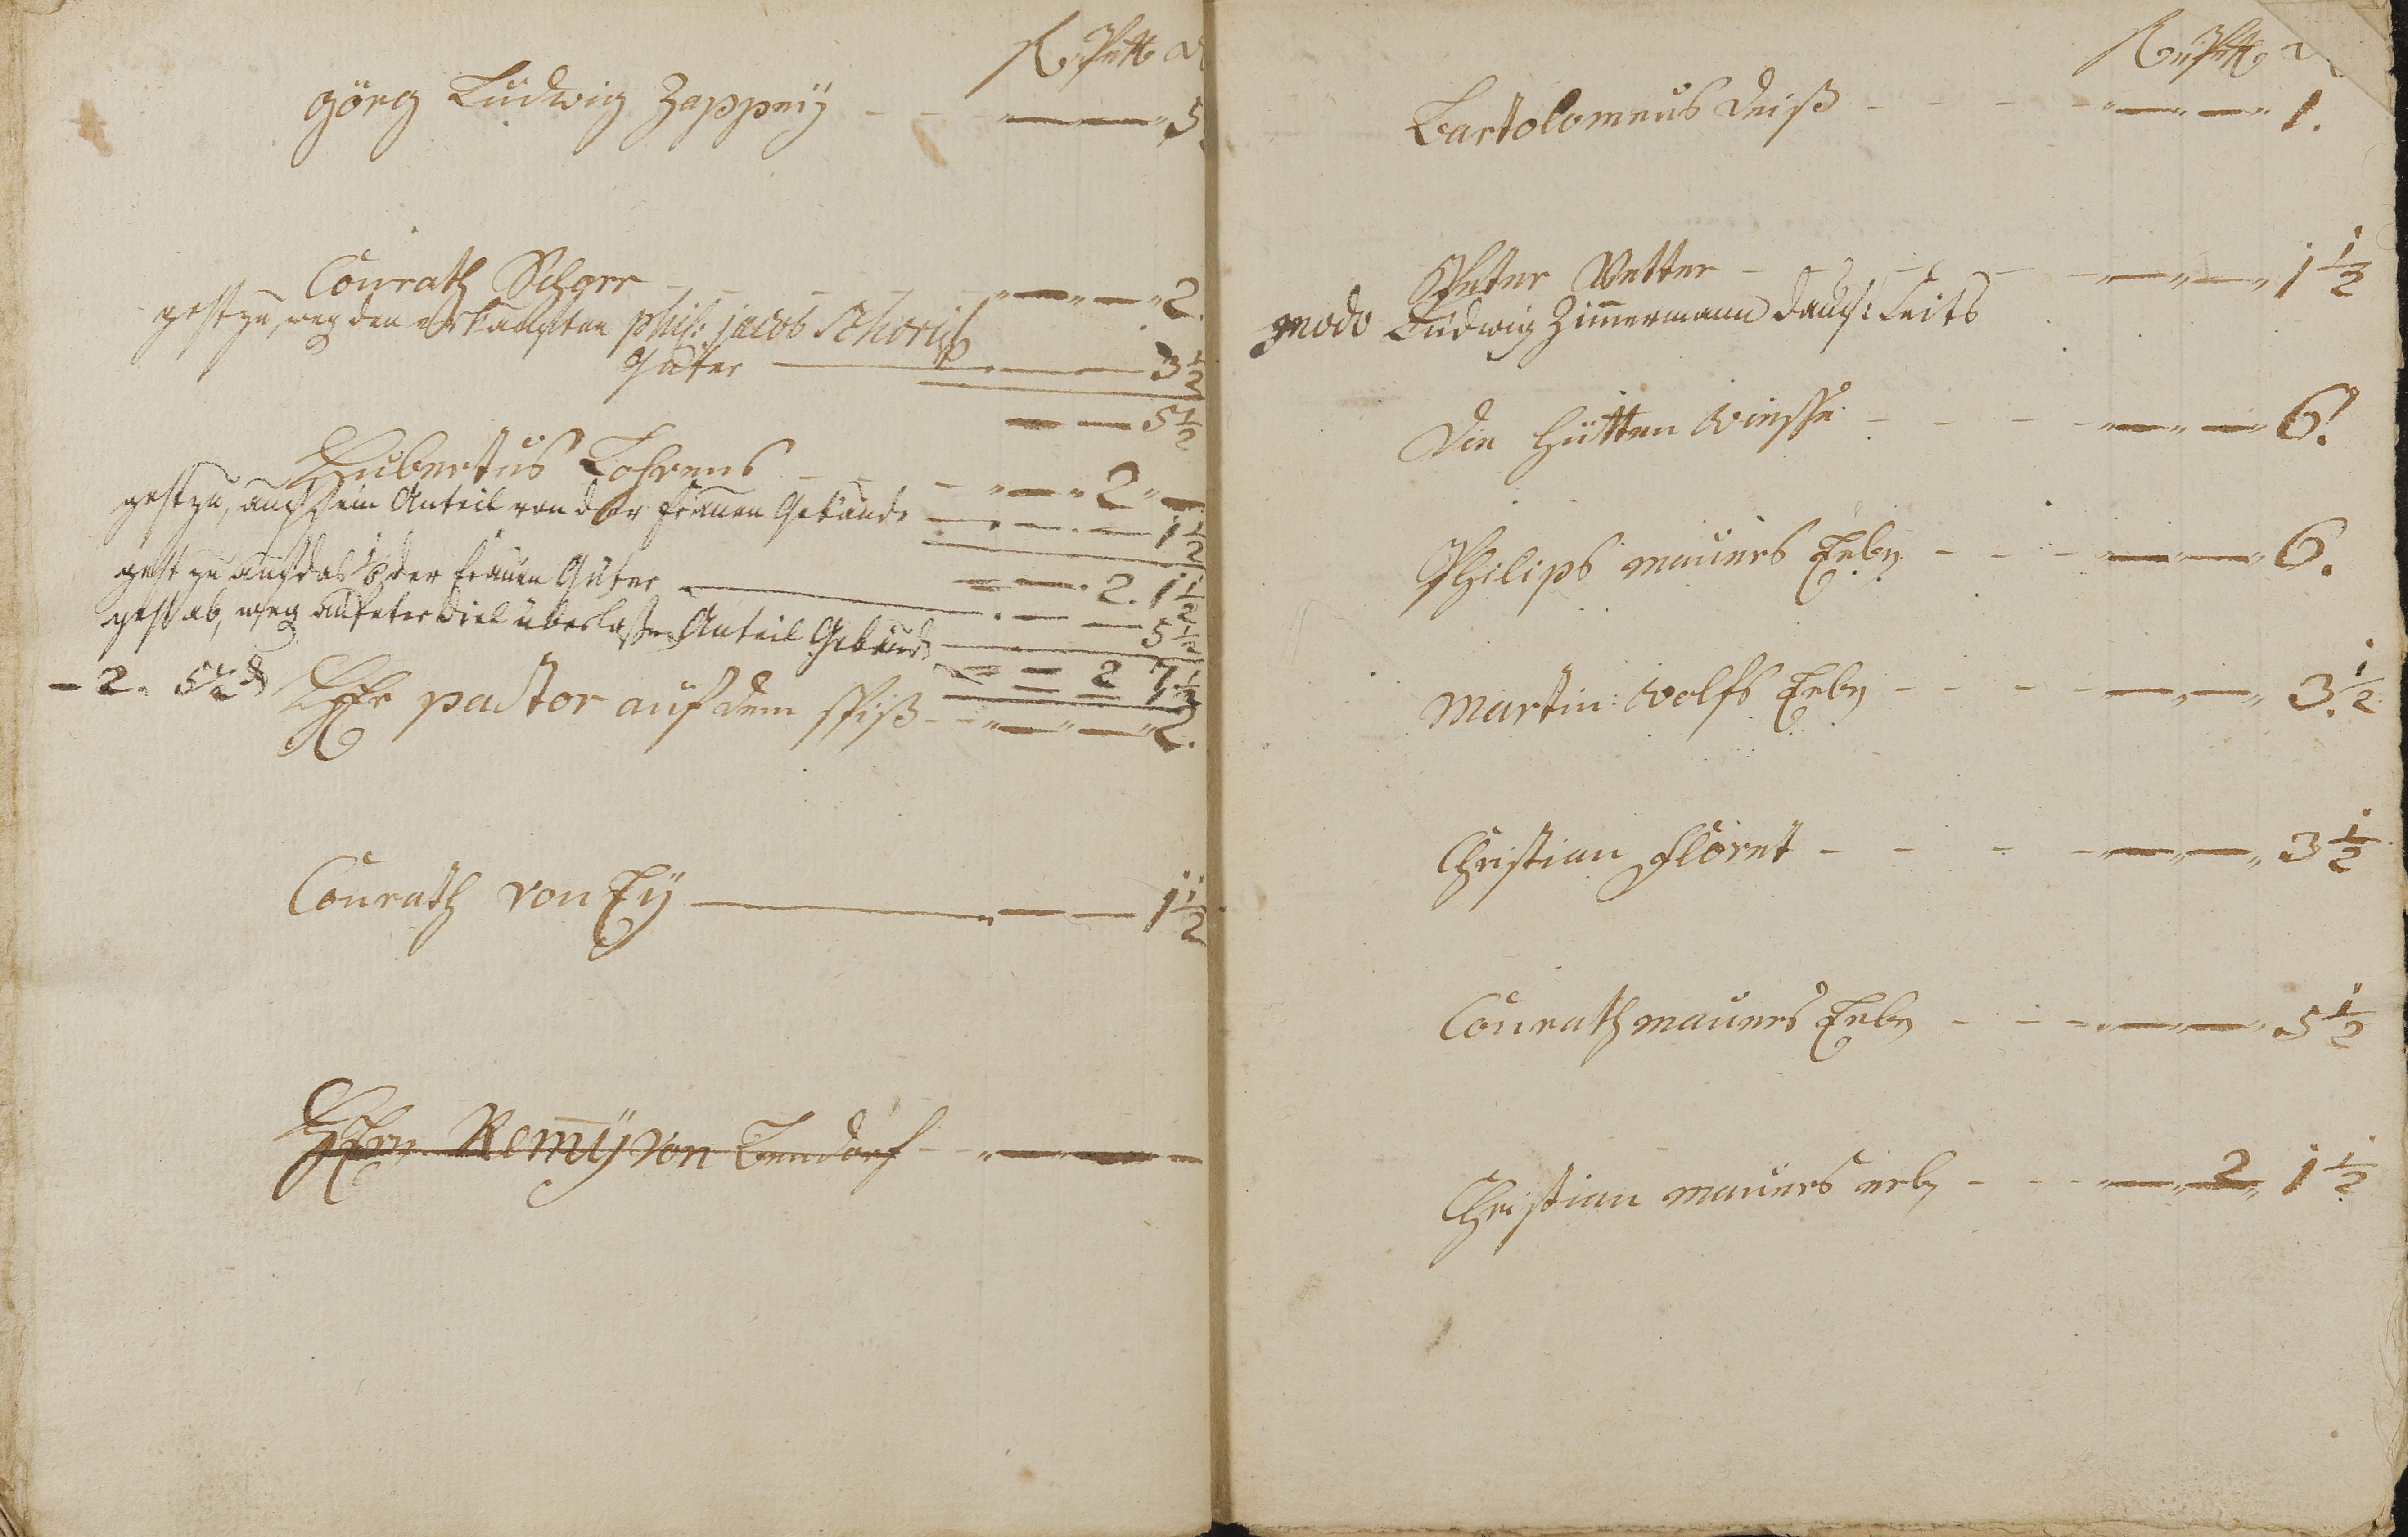 görg Ludwig Zappey - - - 5
Conrath Schorr - - - 2.
geht zu, weg den erkauften phil: jacob Schorisch
Güter 3 1/2
5 1/2
Hubertus Lohrens - - - 2 -
geht zu, auch sein Anteil von der frauen Gebäude 1 1/2
2. 1 1/2
geht zu auch das der frauen Güter 5 1/2
geht ab, weg an peter diel überlaßen Anteil Gebäude
2 7 1/2
- 2. 5 1/2
Herr pastor auf dem spiß - - 2.
Conrath von Ey 1 1/2
Herrn Remÿ von Bendorf - -
Bartolomeus deiß - - - - 1.
Peter Vetter - - - - 1 1/2
modo Ludwig Zimmermann
Die hütten wiesse - - - - 6.
Philips mauers Erben - - - 6.
Martin wolfs Erben - - - - 3 1/2
Christian floret - - - - 3 1/2
Conrath mauers Erben - - - 5 1/2
Christian mauers erben - - - 2 1 1/2